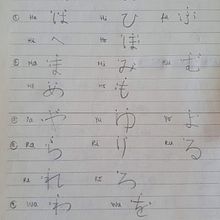 Ha は Hi ひ Fu ふ
He へ Ho ほ
Ma ま Mi み Mu む
Me め Mo も
Ya や Yu ゆ Yo よ
Ra ら Ri り Ru る
Re れ Ro ろ
Wa わ Wo を